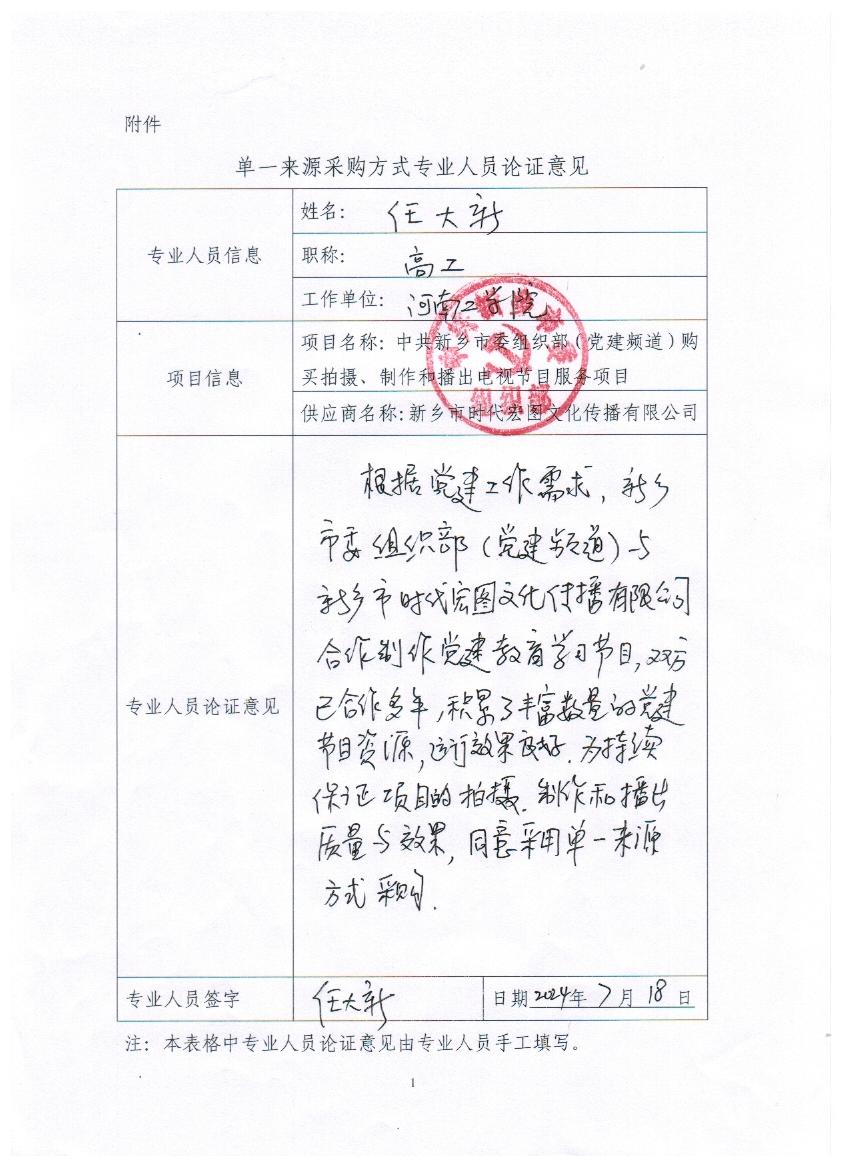 附件
单一来源采购方式专业人员论证意见
专业人员信息
姓名: 任大新
职称: 高工
工作单位: 河南工学院
项目信息
项目名称: 中共新乡市委组织部(党建频道)购
买拍摄、制作和播出电视节目服务项目
供应商名称: 新乡市时代宏图文化传播有限公司
组织部
专业人员论证意见
根据党建工作需求, 新乡
市委组织部(党建频道)与
新乡市时代宏图文化传播有限公司
合作制作党建教育学习节目, 双方
已合作多年, 积累了丰富数量的党建
节目资源, 运行效果良好. 为持续
保证项目的拍摄. 制作和播出
质量与效果, 同意采用单一来源
方式采购.
专业人员签字
任大新
日期 2024年 7月 18日
注: 本表格中专业人员论证意见由专业人员手工填写。
1